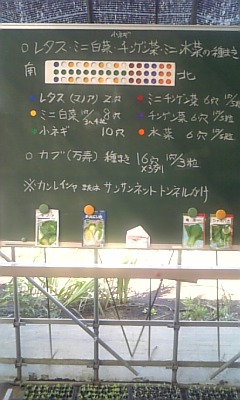 小ネギ
○ レタス・ミニ白菜・チンゲン菜・ミニ 水菜の種まき
南 北
レタス(マノア) 2穴
ミニチンゲン菜 6穴 1穴/5粒
ミニ白菜 8穴
チンゲン菜 6穴 1穴/5粒
小ネギ 10穴
水菜 6穴 1穴/5粒
○ カブ(万弄) 種まき 16穴 1穴/3粒
×3列
※ カンレイシャ または サンサンネット トンネルがけ